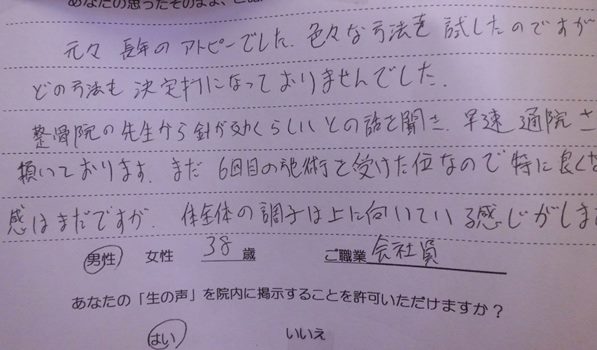 あなたの思ったそのまま、ご感
元々 長年のアトピーでした。色々な方法を 試したのですが
どの方法も 決定打になっておりませんでした。
整骨院の先生から針が効くらしいとの話を聞き、早速 通院さ
頂いております。まだ 6回目の施術を受けた位なので特に良くな
感はまだですが、体全体の調子は上に向いている感じがしま
男性 女性 38 歳 ご職業 会社員
あなたの「生の声」を院内に掲示することを許可いただけますか?
はい いいえ